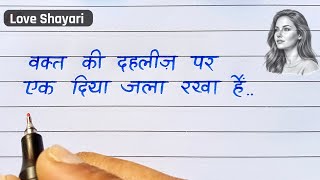 Love Shayari
वक्त की दहलीज़ पर
एक दिया जला रखा हैं..